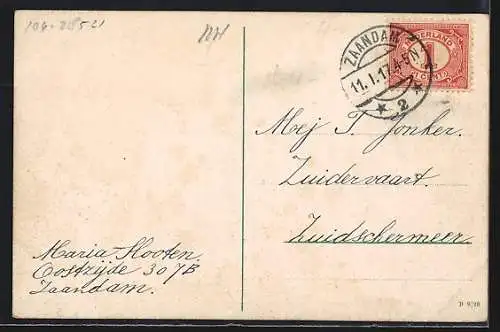 104-28521
ZAANDAM
11.1.17.4-5N
2
NEDERLAND
1
CENT
Mej T. Jonker.
Zuidervaart.
Zuidschermeer.
Maria Hooten.
Oostzijde 307B
Zaandam.
D 9/10